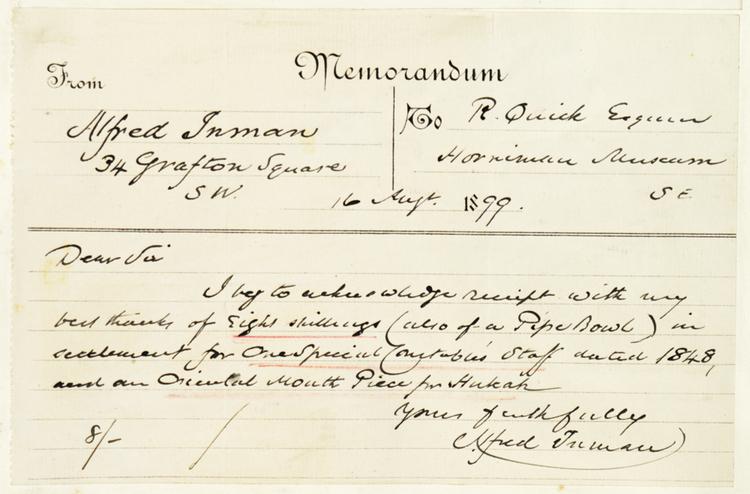 Memorandum
From
To
Alfred Inman
34 Grafton Square
S W.
R. Quick Esquire
Horniman Museum
S E
16 Augt. 1899.
Dear Sir
I beg to acknowledge receipt with my
best thanks of Eight shillings (also of a Pipe Bowl) in
settlement for One Special Constable's Staff dated 1848,
and an Oriental Mouth Piece for Hukah
Yours faithfully
Alfred Inman
8/-